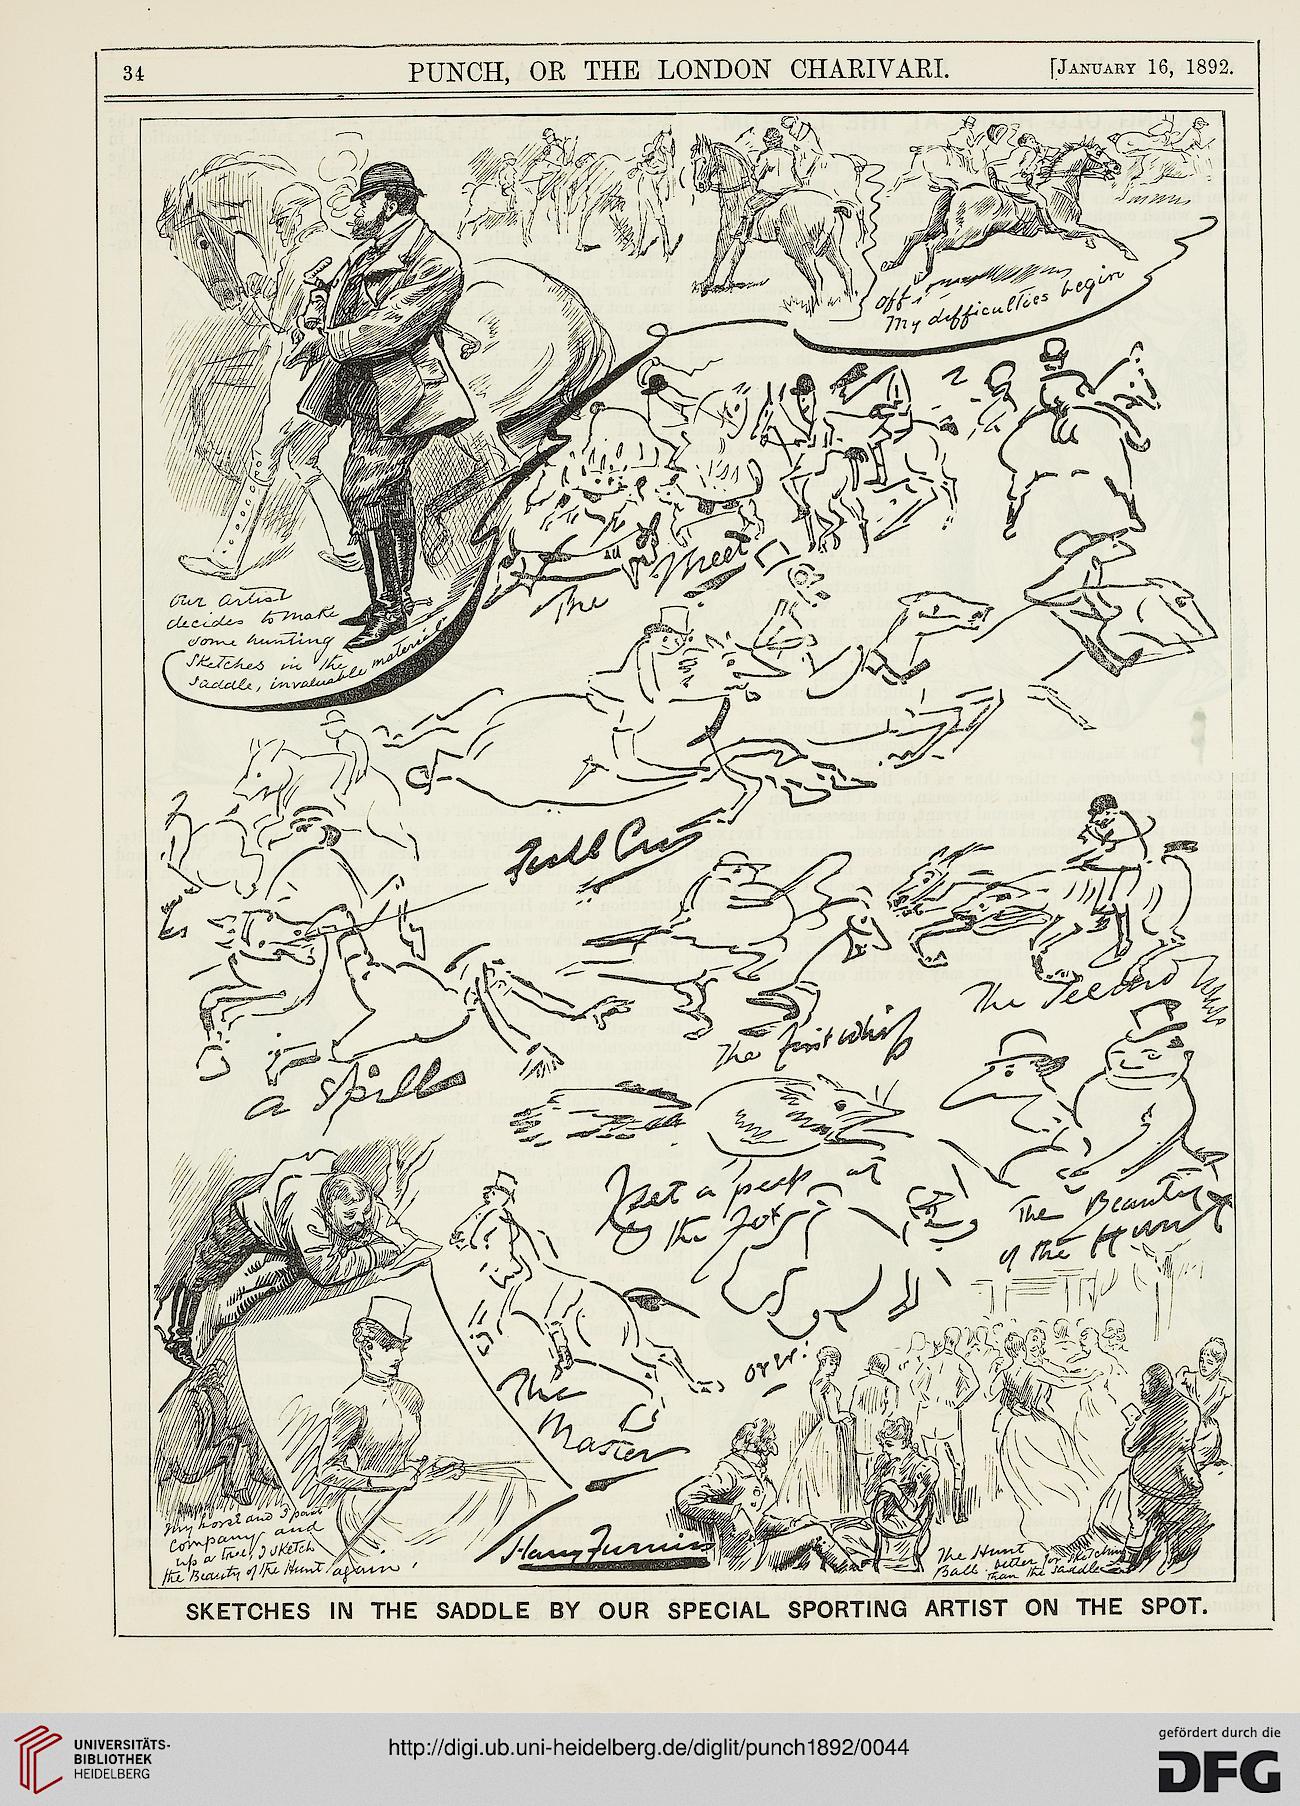 34
PUNCH, OR THE LONDON CHARIVARI.
[JANUARY 16, 1892.
off!
My difficulties begin
Our Artist
decides to make
some hunting
Sketches in the
saddle, invaluable material
The Meet
Full Cry
The Second Whip
The first whip
a Spill
I get a peep at
the Fox
The Beauty
of the Hunt
over!
The
Master
My horse and I part
Company, and
up a tree, I sketch
the Beauty of the Hunt again
Harry Furniss
The Hunt
Ball better for sketching
than the saddle
SKETCHES IN THE SADDLE BY OUR SPECIAL SPORTING ARTIST ON THE SPOT.
UNIVERSITÄTS-
BIBLIOTHEK
HEIDELBERG
http://digi.ub.uni-heidelberg.de/diglit/punch1892/0044
gefördert durch die
DFG